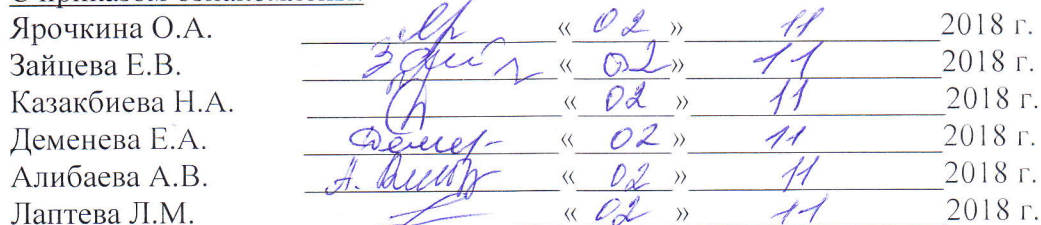 С приказом ознакомлены:
Ярочкина О.А. « 02 » 11 2018 г.
Зайцева Е.В. « 02 » 11 2018 г.
Казакбиева Н.А. « 02 » 11 2018 г.
Деменева Е.А. « 02 » 11 2018 г.
Алибаева А.В. « 02 » 11 2018 г.
Лаптева Л.М. « 02 » 11 2018 г.